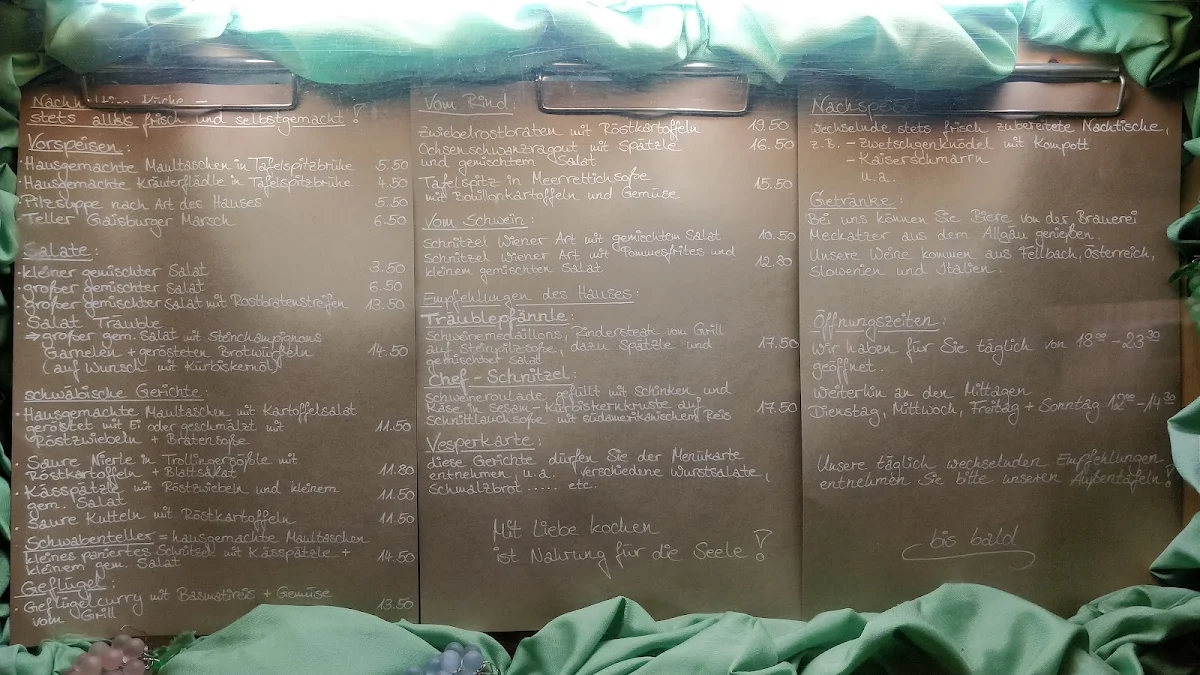 Küche -
stets alles frisch und selbstgemacht!
Vorspeisen:
· Hausgemachte Maultaschen in Tafelspitzbrühe 5.50
· Hausgemachte Kräuterflädle in Tafelspitzbrühe 4.50
· Pilzsuppe nach Art des Hauses 5.50
Teller Gaisburger Marsch 6.50
Salate:
· kleiner gemischter Salat 3.50
· großer gemischter Salat 6.50
· großer gemischter Salat mit Rostbratenstreifen 13.50
· Salat Träuble
⇒ großer gem. Salat mit Steinchampignons
Garnelen + gerösteten Brotwürfeln 14.50
(auf Wunsch mit Kürbiskernöl)
schwäbische Gerichte:
· Hausgemachte Maultaschen mit Kartoffelsalat
geröstet mit Ei oder geschmälzt mit 11.50
Röstzwiebeln + Bratensoße
· Saure Nierle in Trollingersößle mit
Röstkartoffeln + Blattsalat 11.80
· Kässpätzle mit Röstzwiebeln und kleinem
gem. Salat 11.50
· Saure Kutteln mit Röstkartoffeln 11.50
Schwabenteller = hausgemachte Maultaschen
kleines paniertes Schnitzel mit Kässpätzle + 14.50
kleinem gem. Salat
Geflügel:
· Geflügelcurry mit Basmatireis + Gemüse
vom Grill 13.50
Vom Rind:
Zwiebelrostbraten mit Röstkartoffeln 19.50
Ochsenschwanzragout mit Spätzle 16.50
und gemischtem Salat
Tafelspitz in Meerrettichsoße
mit Bouillonkartoffeln und Gemüse 15.50
Vom Schwein:
Schnitzel Wiener Art mit gemischtem Salat 10.50
Schnitzel Wiener Art mit Pommesfrites und
kleinem gemischten Salat 12.80
Empfehlungen des Hauses:
Träublepfännle:
Schweinemedaillons, Rindersteak vom Grill
auf Steinpilzsoße, dazu Spätzle und 17.50
gemischter Salat
Chef-Schnitzel:
Schweineroulade gefüllt mit Schinken und
Käse in Sesam-Kürbiskernkruste auf 17.50
Schnittlauchsoße mit südamerikanischem Reis
Vesperkarte:
diese Gerichte dürfen Sie der Menükarte
entnehmen, u.a. verschiedene Wurstsalate,
Schmalzbrot ..... etc.
Mit Liebe kochen
ist Nahrung für die Seele!
wechselnde stets frisch zubereitete Nachtische,
z.B. - Zwetschgenknödel mit Kompott
- Kaiserschmarrn
u.a.
Getränke:
Bei uns können Sie Biere von der Brauerei
Meckatzer aus dem Allgäu genießen.
Unsere Weine kommen aus Fellbach, Österreich,
Slowenien und Italien.
Öffnungszeiten:
Wir haben für Sie täglich von 18⁰⁰ - 23³⁰
geöffnet.
Weiterhin an den Mittagen
Dienstag, Mittwoch, Freitag + Sonntag 12⁰⁰ - 14³⁰
Unsere täglich wechselnden Empfehlungen
entnehmen Sie bitte unseren Außentafeln!
bis bald